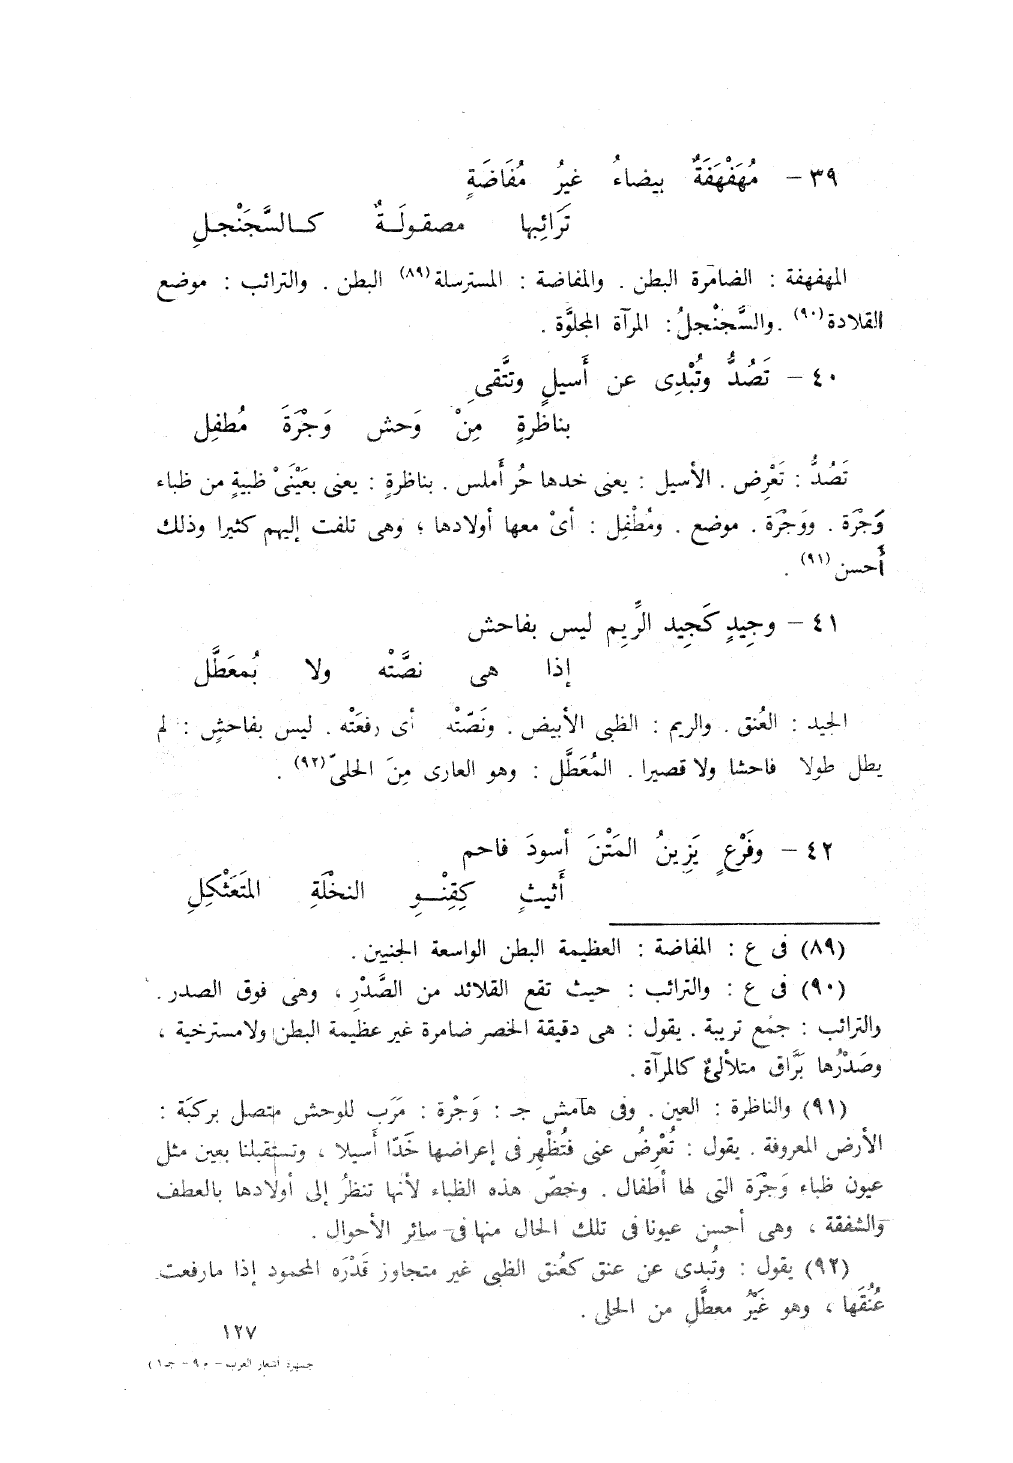 ٣٩ – مُهَفْهَفَةٌ بيضاءُ غيرُ مُفَاضَةٍ
تَرَائِبها مصقـولَـةٌ كـالسَّجَنْجـلِ
المهفهفة : الضامرة البطن . والمفاضة : المسترسلة(٨٩) البطن . والترائب : موضع
القلادة(٩٠) . والسَّجنْجلُ : المرآة المجلوَّة .
٤٠ – تَصُدُّ وتُبْدِى عن أَسيلٍ وتتَّقى
بناظرةٍ مِنْ وَحش وَجْرَةَ مُطفِل
تَصُدُّ : تَعْرِض . الأسيل : يعنى خدها حُر أملس . بناظرةٍ : يعنى بعَيْنَىْ ظبيةٍ من ظباء
وَجْرَة . ووَجْرَة . موضع . ومُطْفِل : أىْ معها أولادها ؛ وهى تلفت إليهم كثيرا وذلك
أَحسن(٩١) .
٤١ – وجِيدٍ كَجِيد الرِّيِم ليس بفاحش
إذا هى نصَّتْه ولا بُمعَطَّل
الجيد : العُنق . والريم : الظبى الأبيض . ونَصّتْه أى رفعَتْه . ليس بفاحشٍ : لم
يطل طولا فاحشا ولا قصيرا . المُعَطَّل : وهو العارى مِنَ الحلىّ(٩٢) .
٤٢ – وفَرْعٍ يَزِينُ المَتْنَ أسودَ فاحم
أَثيثٍ كِقِنْـــوِ النخْلَةِ المَتَعَثْكِلِ
(٨٩) فى ع : المفاضة : العظيمة البطن الواسعة الجنبين .
(٩٠) فى ع : والترائب : حيث تقع القلائد من الصَّدْرِ ، وهى فوق الصدر .
والترائب : جمْع تريبة . يقول : هى دقيقة الخصر ضامرة غير عظيمة البطن ولامسترخية ،
وصَدْرُها بَرَّاق متلألئٌ كالمرآة .
(٩١) والناظرة : العين . وفى هامش جـ : وَجْرة : مَرَب للوحش متصل بركبَة :
الأرض المعروفة . يقول : تُعْرِضُ عنى فتُظْهِر فى إعراضها خَدّا أَسيلا ، وتستقبلنا بعين مثل
عيون ظباء وَجْرَة التى لها أطفال . وخصّ هذه الظباء لأنها تنظرُ إلى أولادها بالعطف
والشفقة ، وهى أحسن عيونا فى تلك الحال منها فى سائر الأحوال .
(٩٢) يقول : وتُبدى عن عنق كعُنق الظبى غير متجاوز قَدْرَه المحمود إذا مارفعت
عُنُقَها ، وهو غَيْرُ معطَّلٍ من الحلى .
١٢٧
جمهرة أشعار العرب – م ٩ – جـ ١ )